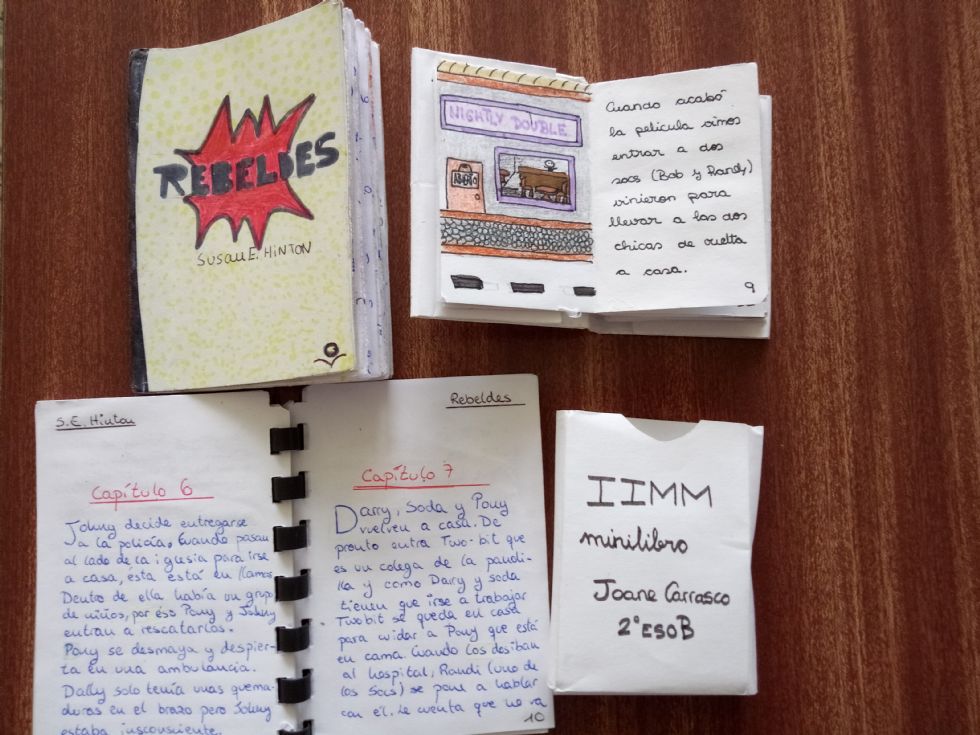 REBELDES
SUSAN E. HINTON
NIGHTLY DOUBLE
Cuando acabó
la película vimos
entrar a dos
socs (Bob y Randy)
vinieron para
llevar a las dos
chicas de vuelta
a casa.
9
S.E. Hinton
Capítulo 6
Johny decide entregarse
a la policía, Cuando pasan
al lado de la iglesia para irse
a casa, ésta está en llamas.
Dentro de ella había un grupo
de niños, por éso Pony y Johny
entran a rescatarlos.
Pony se desmaya y despier-
ta en una ambulancia.
Dally solo tenía unas quema-
duras en el brazo pero Johny
estaba insconsciente.
Rebeldes
Capítulo 7
Darry, Soda y Pony
vuelven a casa. De
pronto entra Two-bit que
es un colega de la pandi-
lla y como Darry y soda
tienen que irse a trabajar
Twobit se queda en casa
para cuidar a Pony que está
en cama. Cuando los dos iban
al hospital, Randi (uno de
los Socs) se pone a hablar
con él. Le cuenta que no va
10
IIMM
minilibro
Joane Carrasco
2º ESO B